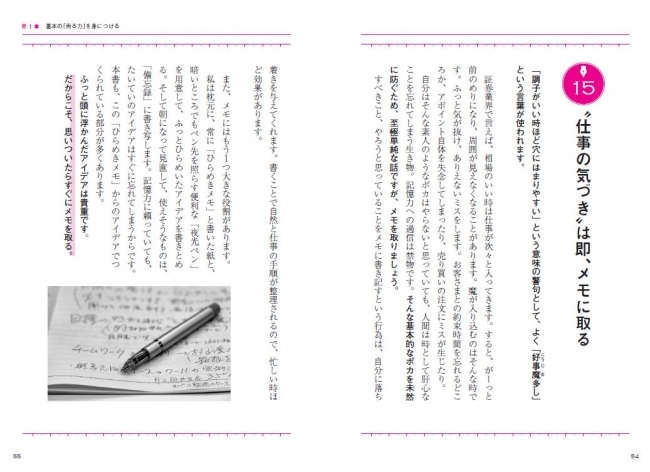 15
“仕事の気づき”は即、メモに取る
「調子がいい時ほど穴にはまりやすい」という意味の警句として、よく「好事魔多し」
という言葉が使われます。
証券業界で言えば、相場のいい時は仕事が次々と入ってきます。すると、がーっと
前のめりになり、周囲が見えなくなることがあります。魔が入り込むのはそんな時で
す。ふっと気が抜け、ありえないミスをします。お客さまとの約束時間を忘れるどこ
ろか、アポイント自体を失念してしまったり、売り買いの注文にミスが生じたり。
自分はそんな素人のようなポカはやらないと思っていても、人間は時として肝心な
ことを忘れてしまう生き物。記憶力への過信は禁物です。そんな基本的なポカを未然
に防ぐため、至極単純な話ですが、メモを取りましょう。
すべきこと、やろうと思っていることをメモに書き記すという行為は、自分に落ち
54
第1章 基本の「売る力」を身につける
着きを与えてくれます。書くことで自然と仕事の手順が整理されるので、忙しい時ほ
ど効果があります。
また、メモにはもう1つ大きな役割があります。
私は枕元に、常に「ひらめきメモ」と書いた紙と、
暗いところでもペン先を照らす便利な「夜光ペン」
を用意して、ふっとひらめいたアイデアを書きとめ
る。そして朝になって見直して、使えそうなものは、
「備忘録」に書き写します。記憶力に頼っていても、
たいていのアイデアはすぐに忘れてしまうからです。
本書も、この「ひらめきメモ」からのアイデアでつ
くられている部分が多くあります。
ふっと頭に浮かんだアイデアは貴重です。
だからこそ、思いついたらすぐにメモを取る。
チームワーク
55